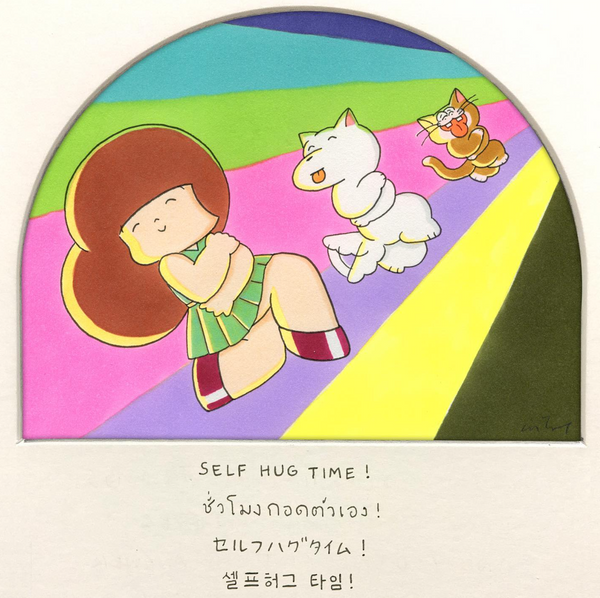 SELF HUG TIME!
ชั่วโมงกอดตัวเอง!
セルフハグタイム!
셀프허그 타임!